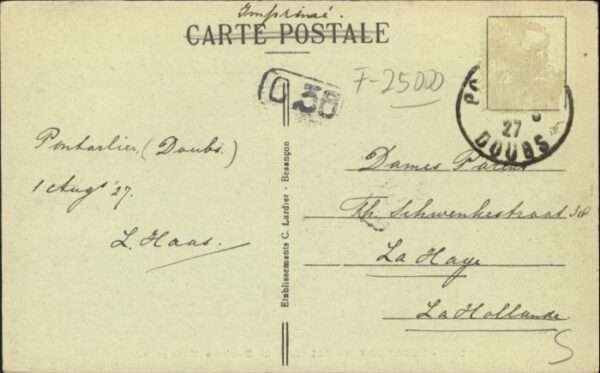 Imprimé.
CARTE POSTALE
C 38
F-25000
27
DOUBS
Pontarlier (Doubs.)
1 Aug' 27.
L. Haas.
Etablissements C. Lardier - Besançon
Dames
Th. Schwenkestraat 38
La Haye
La Hollande
S